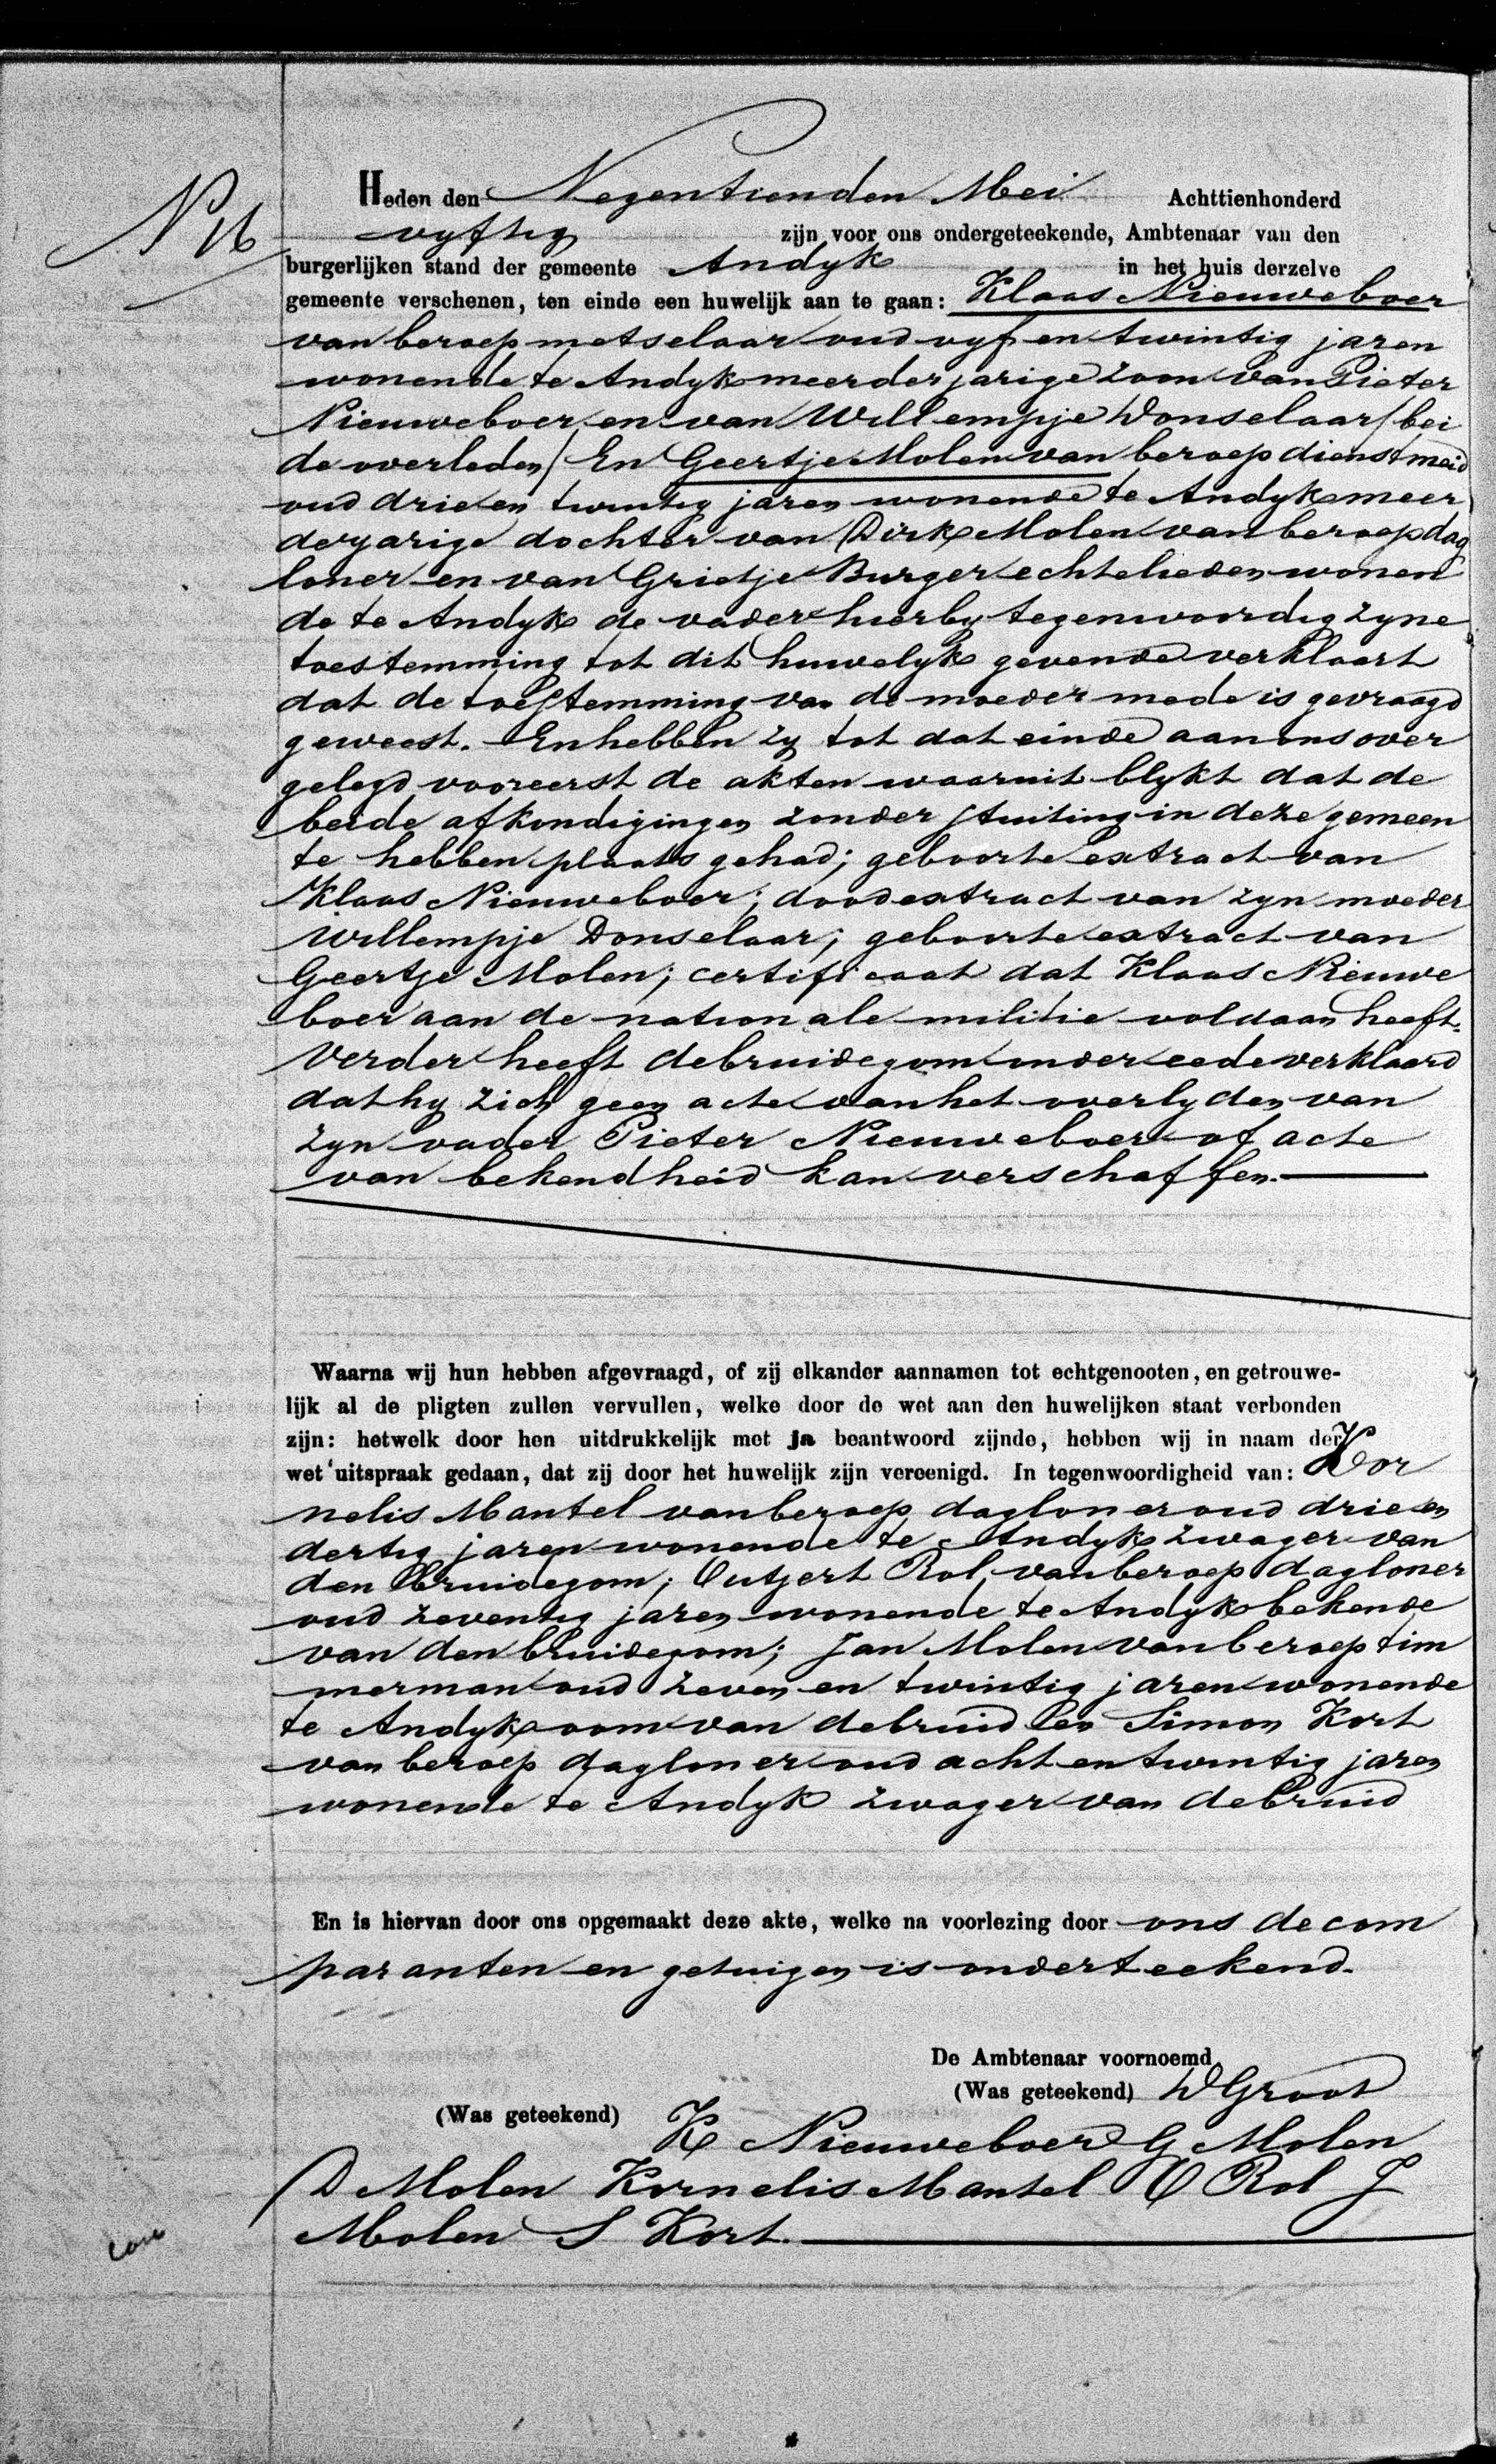 N 16
Heden den Negentienden Mei Achttienhonderd
vyftig zijn voor ons ondergeteekende, Ambtenaar van den
burgerlijken stand der gemeente Andyk in het huis derzelve
gemeente verschenen, ten einde een huwelijk aan te gaan: Klaas Nieuweboer
van beroep metselaar oud vyf en twintig jaren
wonende te Andyk meerderjarige zoon van Pieter
Nieuweboer en van Willempje Donselaar / bei
de overleden / En Geertje Molen van beroep dienstmeid
oud drie en twintig jaren wonende te Andyk meer
derjarige dochter van Dirk Molen van beroep dag
loner en van Grietje Burger echtelieden wonen
de te Andyk de vader hierby tegenwoordig zyne
toestemming tot dit huwelyk gevende verklaart
dat de toestemming van de moeder mede is gevraagd
geweest. En hebben zy tot dat einde aan ons over
gelegd vooreerst de akten waaruit blykt dat de
beide afkondigingen zonder stuiting in deze gemeen
te hebben plaats gehad; geboorte extract van
Klaas Nieuweboer; doodextract van zyn moeder
Willempje Donselaar; geboorte extract van
Geertje Molen; certificaat dat Klaas Nieuwe
boer aan de nationale militie voldaan heeft.
Verder heeft de bruidegom onder eede verklaard
dat hy zich geen acte van het overlyden van
zyn vader Pieter Nieuweboer of acte
van bekendheid kan verschaffen.
Waarna wij hun hebben afgevraagd, of zij elkander aannamen tot echtgenooten, en getrouwe-
lijk al de pligten zullen vervullen, welke door de wet aan den huwelijken staat verbonden
zijn: hetwelk door hen uitdrukkelijk met ja beantwoord zijnde, hebben wij in naam der
wet uitspraak gedaan, dat zij door het huwelijk zijn vereenigd. In tegenwoordigheid van: Kor
nelis Mantel van beroep dagloner oud drie en
dertig jaren wonende te Andyk zwager van
den bruidegom; Outjert Rol van beroep dagloner
oud zeventig jaren wonende te Andyk bekende
van den bruidegom; Jan Molen van beroep tim
merman oud zeven en twintig jaren wonende
te Andyk oom van de bruid en Simon Kort
van beroep dagloner oud acht en twintig jaren
wonende te Andyk zwager van de bruid
En is hiervan door ons opgemaakt deze akte, welke na voorlezing door ons de com
paranten en getuigen is onderteekend.
De Ambtenaar voornoemd,
(Was geteekend) D Groot
(Was geteekend) K Nieuweboer G Molen
D Molen Kornelis Mantel O Rol J
Molen S Kort.